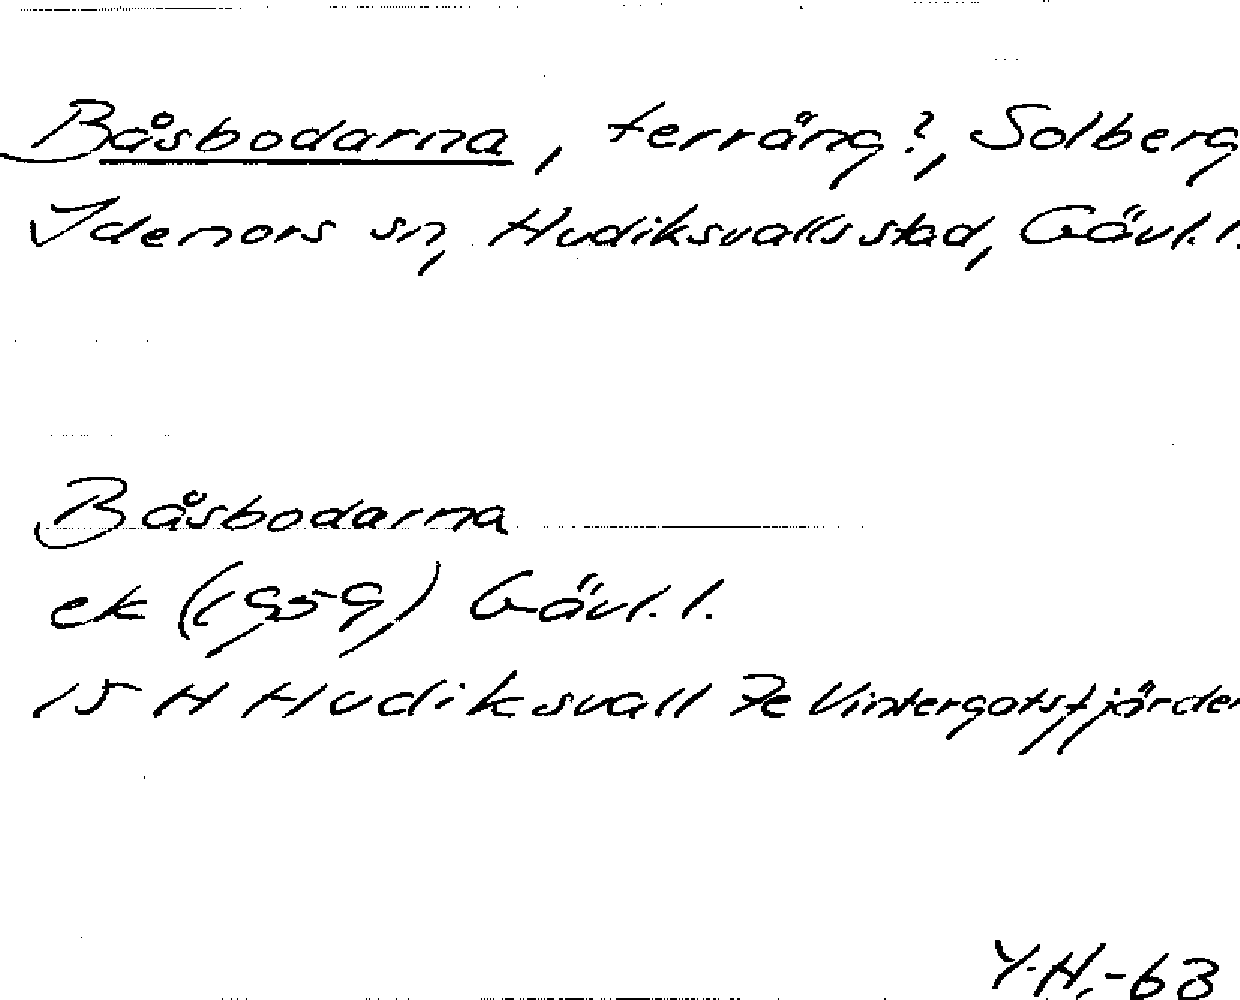 Båsbodarna, terräng?, Solberg
Idenors sn, Hudiksvalls stad, Gävl. l.
Båsbodarna
ek (1959) Gävl. l.
15 H Hudiksvall 7e Vintergatsfjärden
Y.H.-63